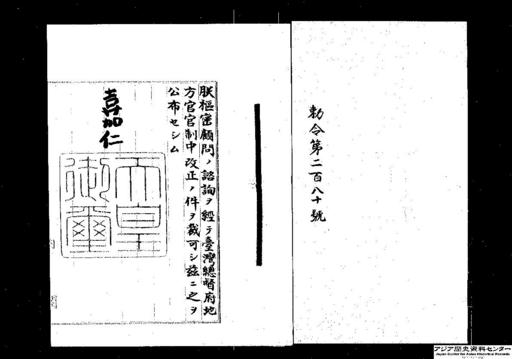 勅令第二百八十號
朕樞密顧問ノ諮詢ヲ經テ臺灣總督府地
方官官制中改正ノ件ヲ裁可シ茲ニ之ヲ
公布セシム
嘉仁
天皇
御璽
アジア歴史資料センター
Japan Center for Asian Historical Records